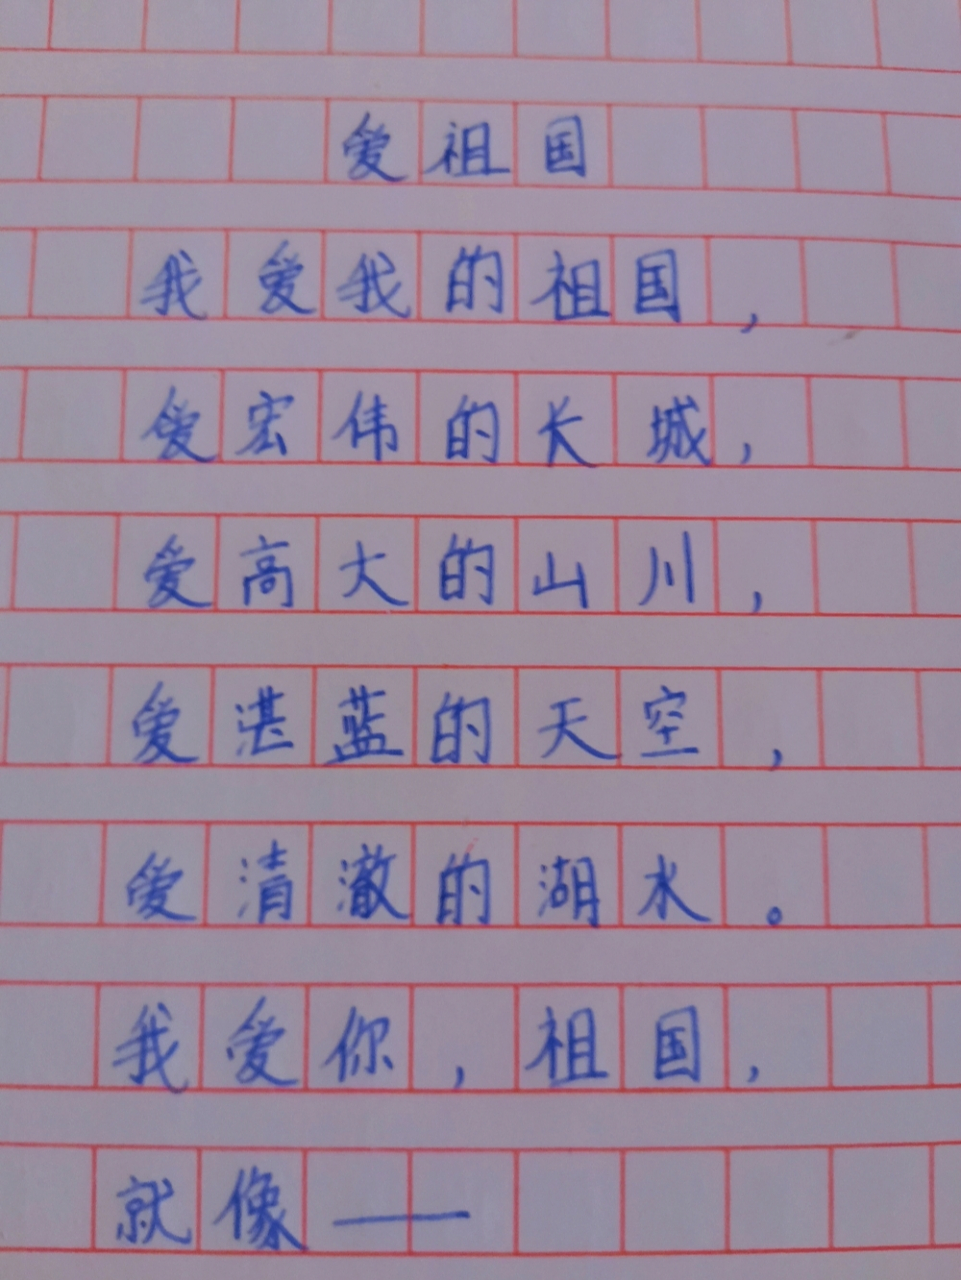 爱祖国
我爱我的祖国，
爱宏伟的长城，
爱高大的山川，
爱湛蓝的天空，
爱清澈的湖水。
我爱你，祖国，
就像——